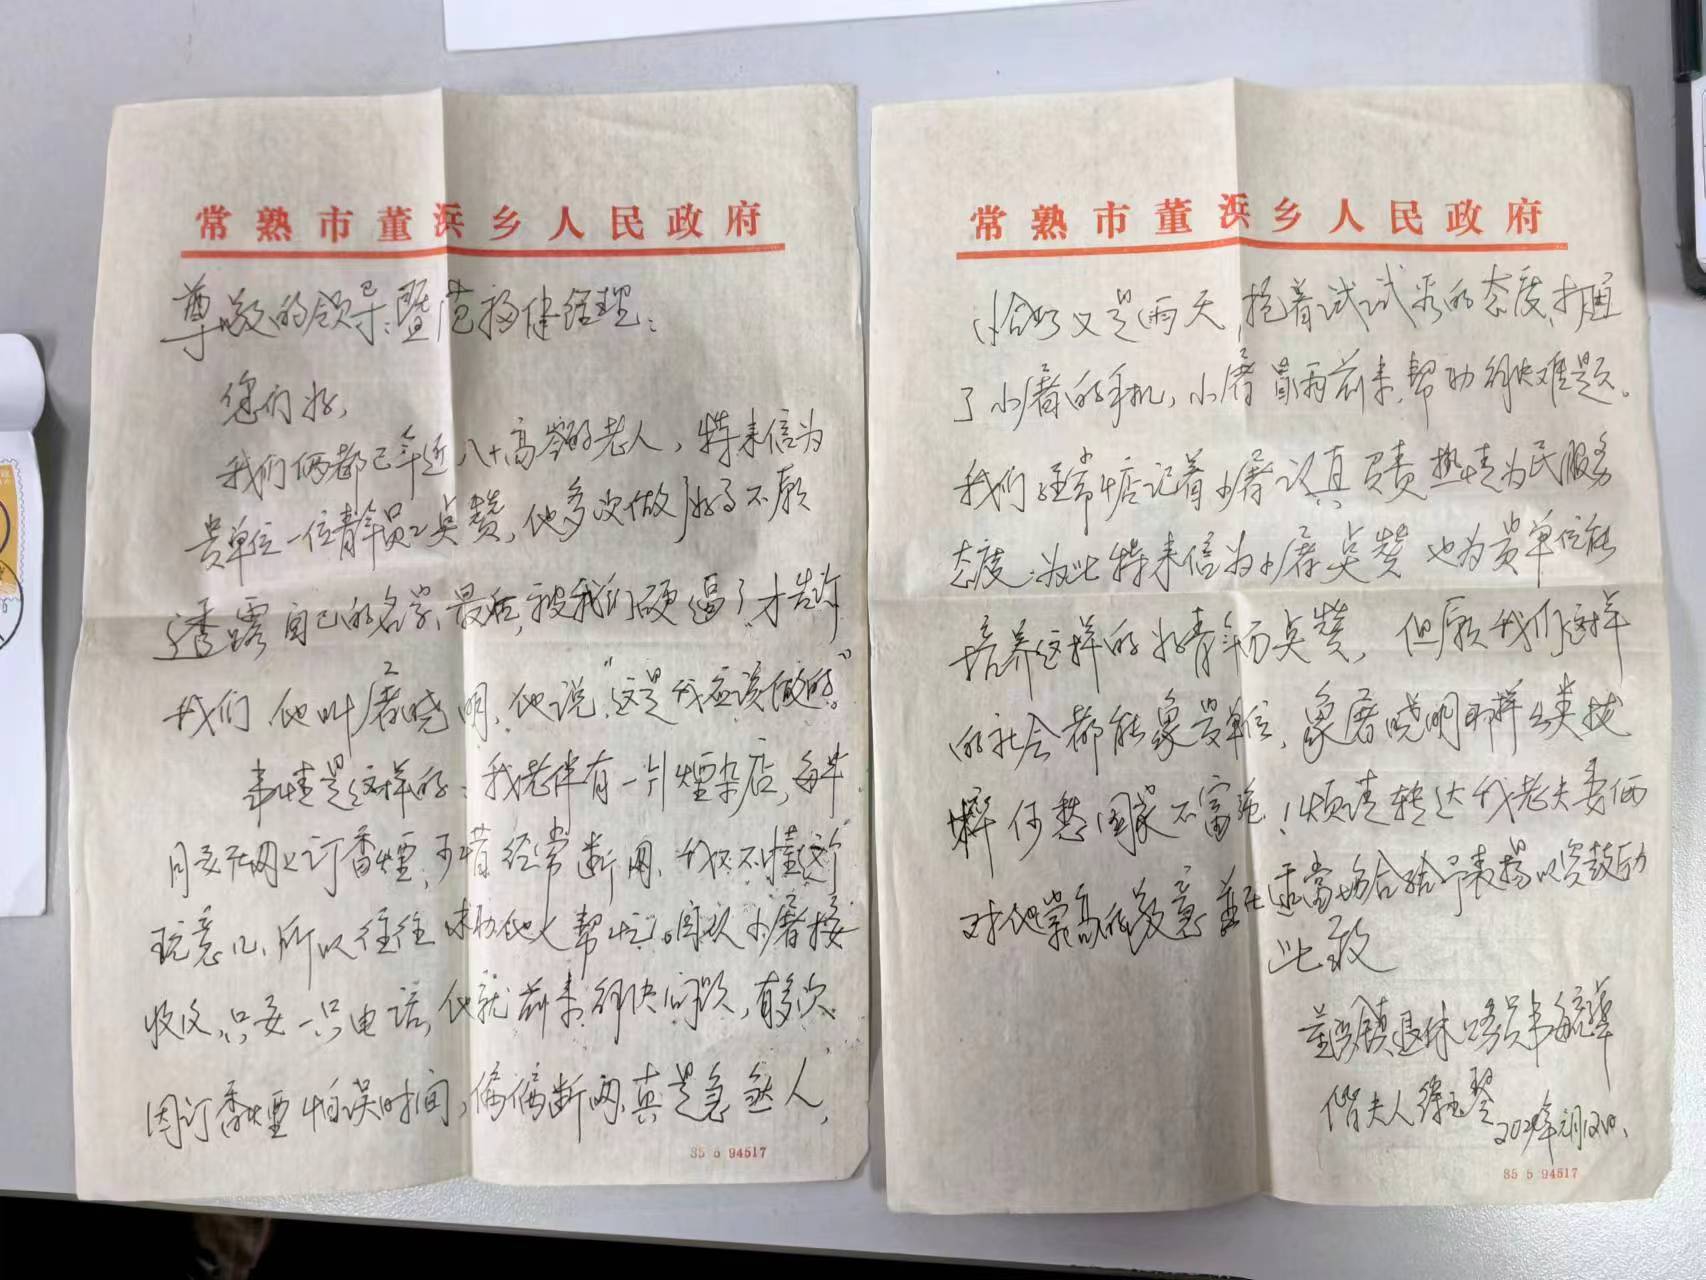 常熟市董浜乡人民政府
尊敬的领导:暨范 经理:
您们好,
我们俩都已年近八十高岁的老人,特来信为
贵单位一位青年员工点赞,他多次做了好事不愿
透露自己的名字、最后,被我们硬逼了才告诉
我们他叫屠晓明,他说,“这是我应该做的。”
事情是这样的:我老伴有一片烟杂店,每半
月要在网上订香烟,可惜经常断网,我们又不懂这个
玩意儿,所以往往 求助他人帮忙。自从小屠接
收后,只要一只电话,他就前来解决问题,有多次
因订香烟怕误时间,偏偏断网,真是急煞人,
35 5 94517
常熟市董浜乡人民政府
恰好又是雨天,抱着试试看的态度,打通
了小屠的手机,小屠冒雨前来帮助解决难题。
我们经常惦记着小屠认真负责热情为民服务
态度,为此特来信为小屠点赞 也为贵单位能
培养这样的好青年而点赞,但愿我们这样
的社会都能象贵单位,象屠晓明那样出类拔
萃何愁国家不富强!烦请转达我老夫妻俩
对他崇高的敬意并在适当场合给予表扬以资鼓励
此致
董浜镇退休 员韦
偕夫人徐 琴
35 5 94517